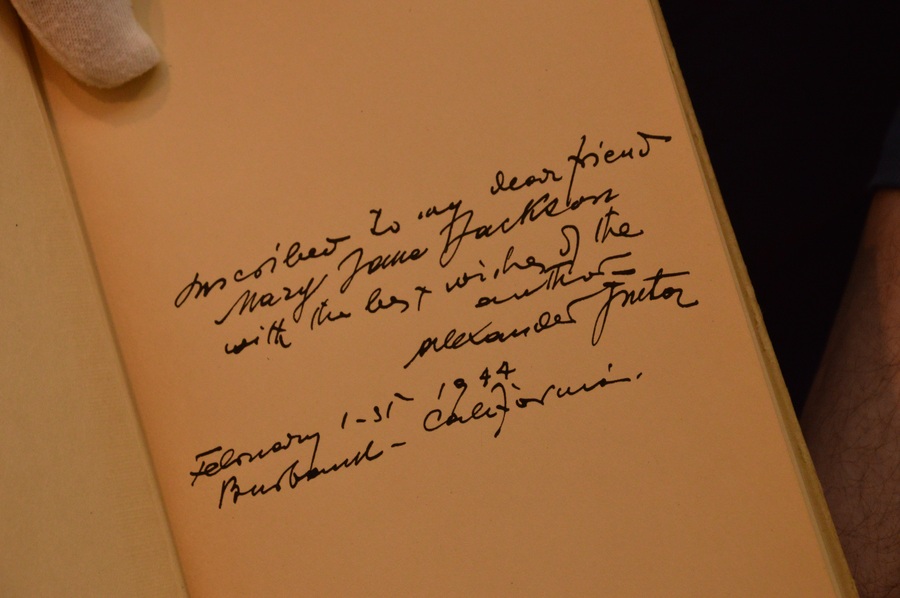 Inscribed to my dear friend
Mary Jane Jackson
with the best wishes of the
author
Alexander
February 1-st 1944
Burbank - California.